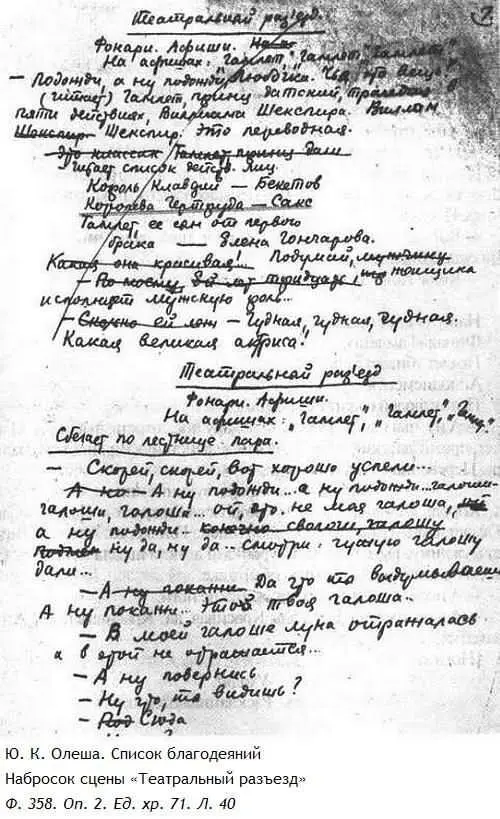 Театральный раз'езд.
Фонари. Афиши.
На афишах: "Гамлет", "Гамлет", "Гамлет".
— Подожди, а ну подожди, Любочка.
(читает) Гамлет, принц датский, трагедия в
пяти действиях, Вилриама Шекспира. Вилиам
Шекспир Шекспир. Это переводная.
Это классик Гамлет, принц дат
Читает список действ. лиц.
Король Клавдий — Бекетов
Королева Гертруда — Сакс
Гамлет ее сын от первого
брака — Елена Гончарова.
Какая она красивая!.. Подумай, мужчину
— По моему, ей лет тридцать, женщина
исполняет мужскую роль...
— Сколько ей лет — Чудная, чудная, чудная.
Какая великая актриса!
Театральный раз'езд
Фонари. Афиши.
На афишах: "Гамлет", "Гамлет",
Сбегает по лестнице пара.
— Скорей, скорей, вот хорошо успели...
А но — А ну подожди... а ну подожди... галоши..
галоши, галоша... ой, это не моя галоша,
а ну подожди.. конечно сволочи, галошу
ну да, ну да... смотри: чужую галошу
дали...
— А ну покажи. Да что ты выдумываешь
А ну покажи... Это твоя галоша..
— В моей галоше луна отражалась
а в этой не отражается...
— А ну повернись
— Ну что, ты видишь?
— Под Сюда
Ю. К. Олеша. Список благодеяний
Набросок сцены «Театральный разъезд»
Ф. 358. Оп. 2. Ед. хр. 71. Л. 40